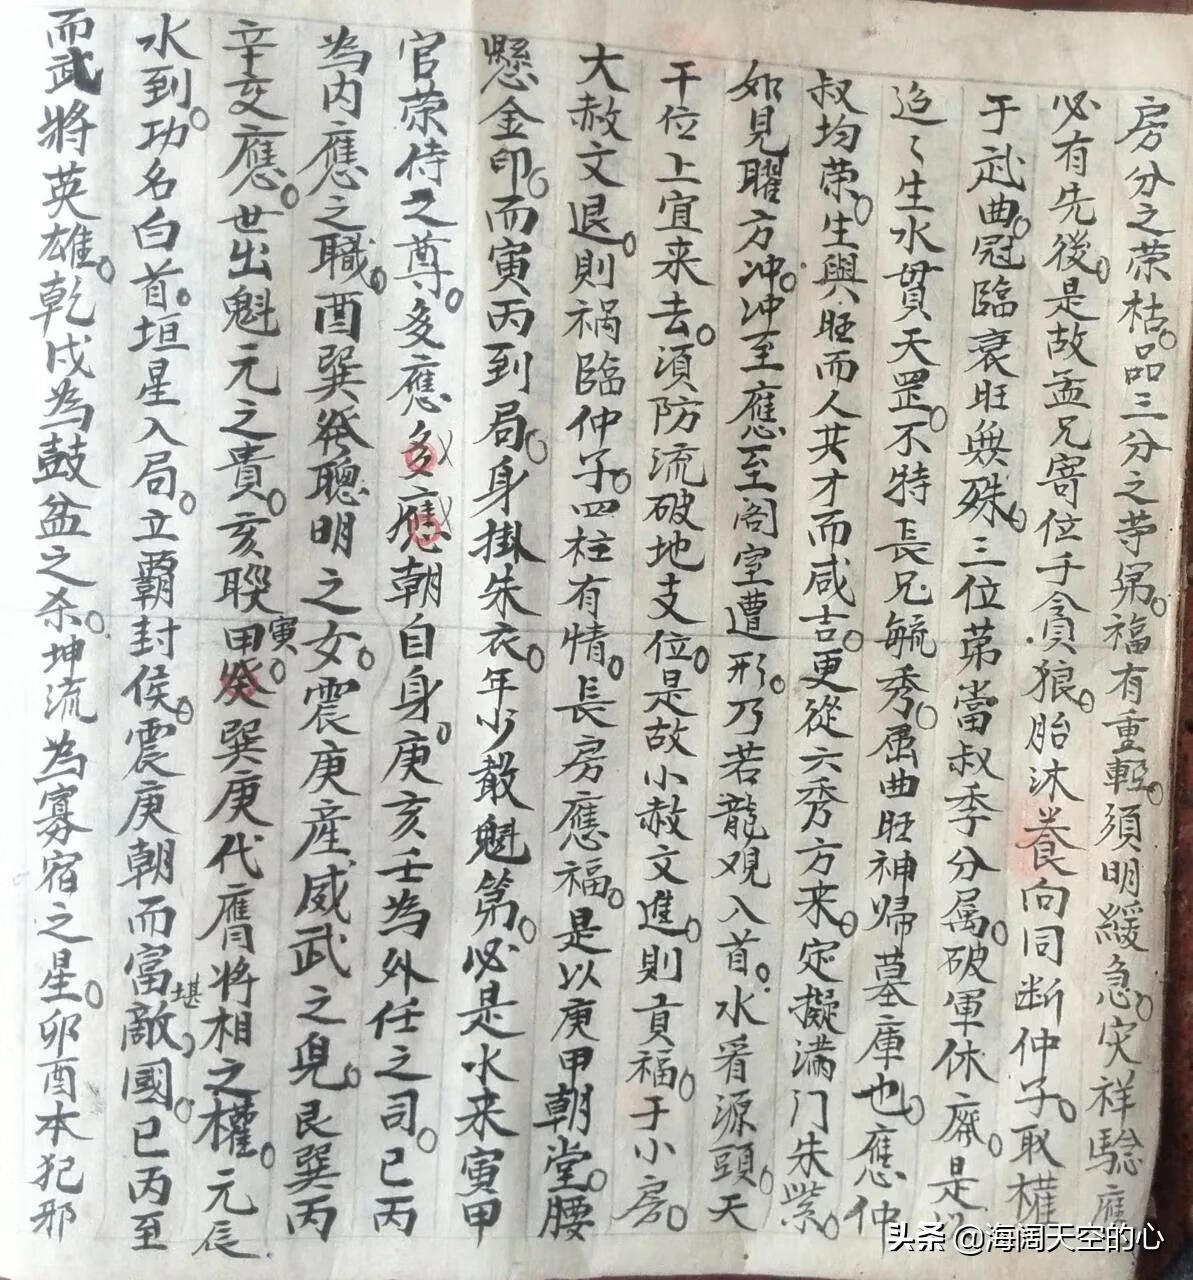 房分之荣枯。品三分之苐㳶。福有重輕。須明緩急。灾祥驗應
必有先後。是故孟兄寄位于貪狼。胎沐養向同断仲子。取權
于武曲。冠臨衰旺無殊。三位苐當叔季分属。破軍休廢。是以
迨〻生水貫天罡。不特長兄毓秀。屈曲旺神帰墓庫也。應仲
叔均荣。生與旺而人共才而咸吉。更從六秀方来。定擬满门朱紫。
如見曜方冲。冲至應至阁室遭形。乃若龍观入首。水看源頭。天
干位上宜来去。須防流破地支位。是故小赦文進。則貢福。于小房。
大赦文退。則祸臨仲子。四柱有情。長房應福。是以庚甲朝堂。腰
懸金印。而寅丙到局。身掛朱衣。年少散魁第。必是水来寅甲
官荣侍之尊。多應多應朝自身。庚亥壬為外任之司。已丙
為内應之職。酉巽發聰明之女。震庚産威武之兒。艮巽丙
辛交應。世出魁元之貴。亥聨甲癸寅。巽庚代膺将相之權。元辰
水到。功名白首。垣星入局。立霸封侯。震庚朝而富堪敵國。已丙至
而武將英雄。乾戌為鼓盆之杀。坤流為寡宿之星。卯酉本犯邪
头条 @海阔天空的心